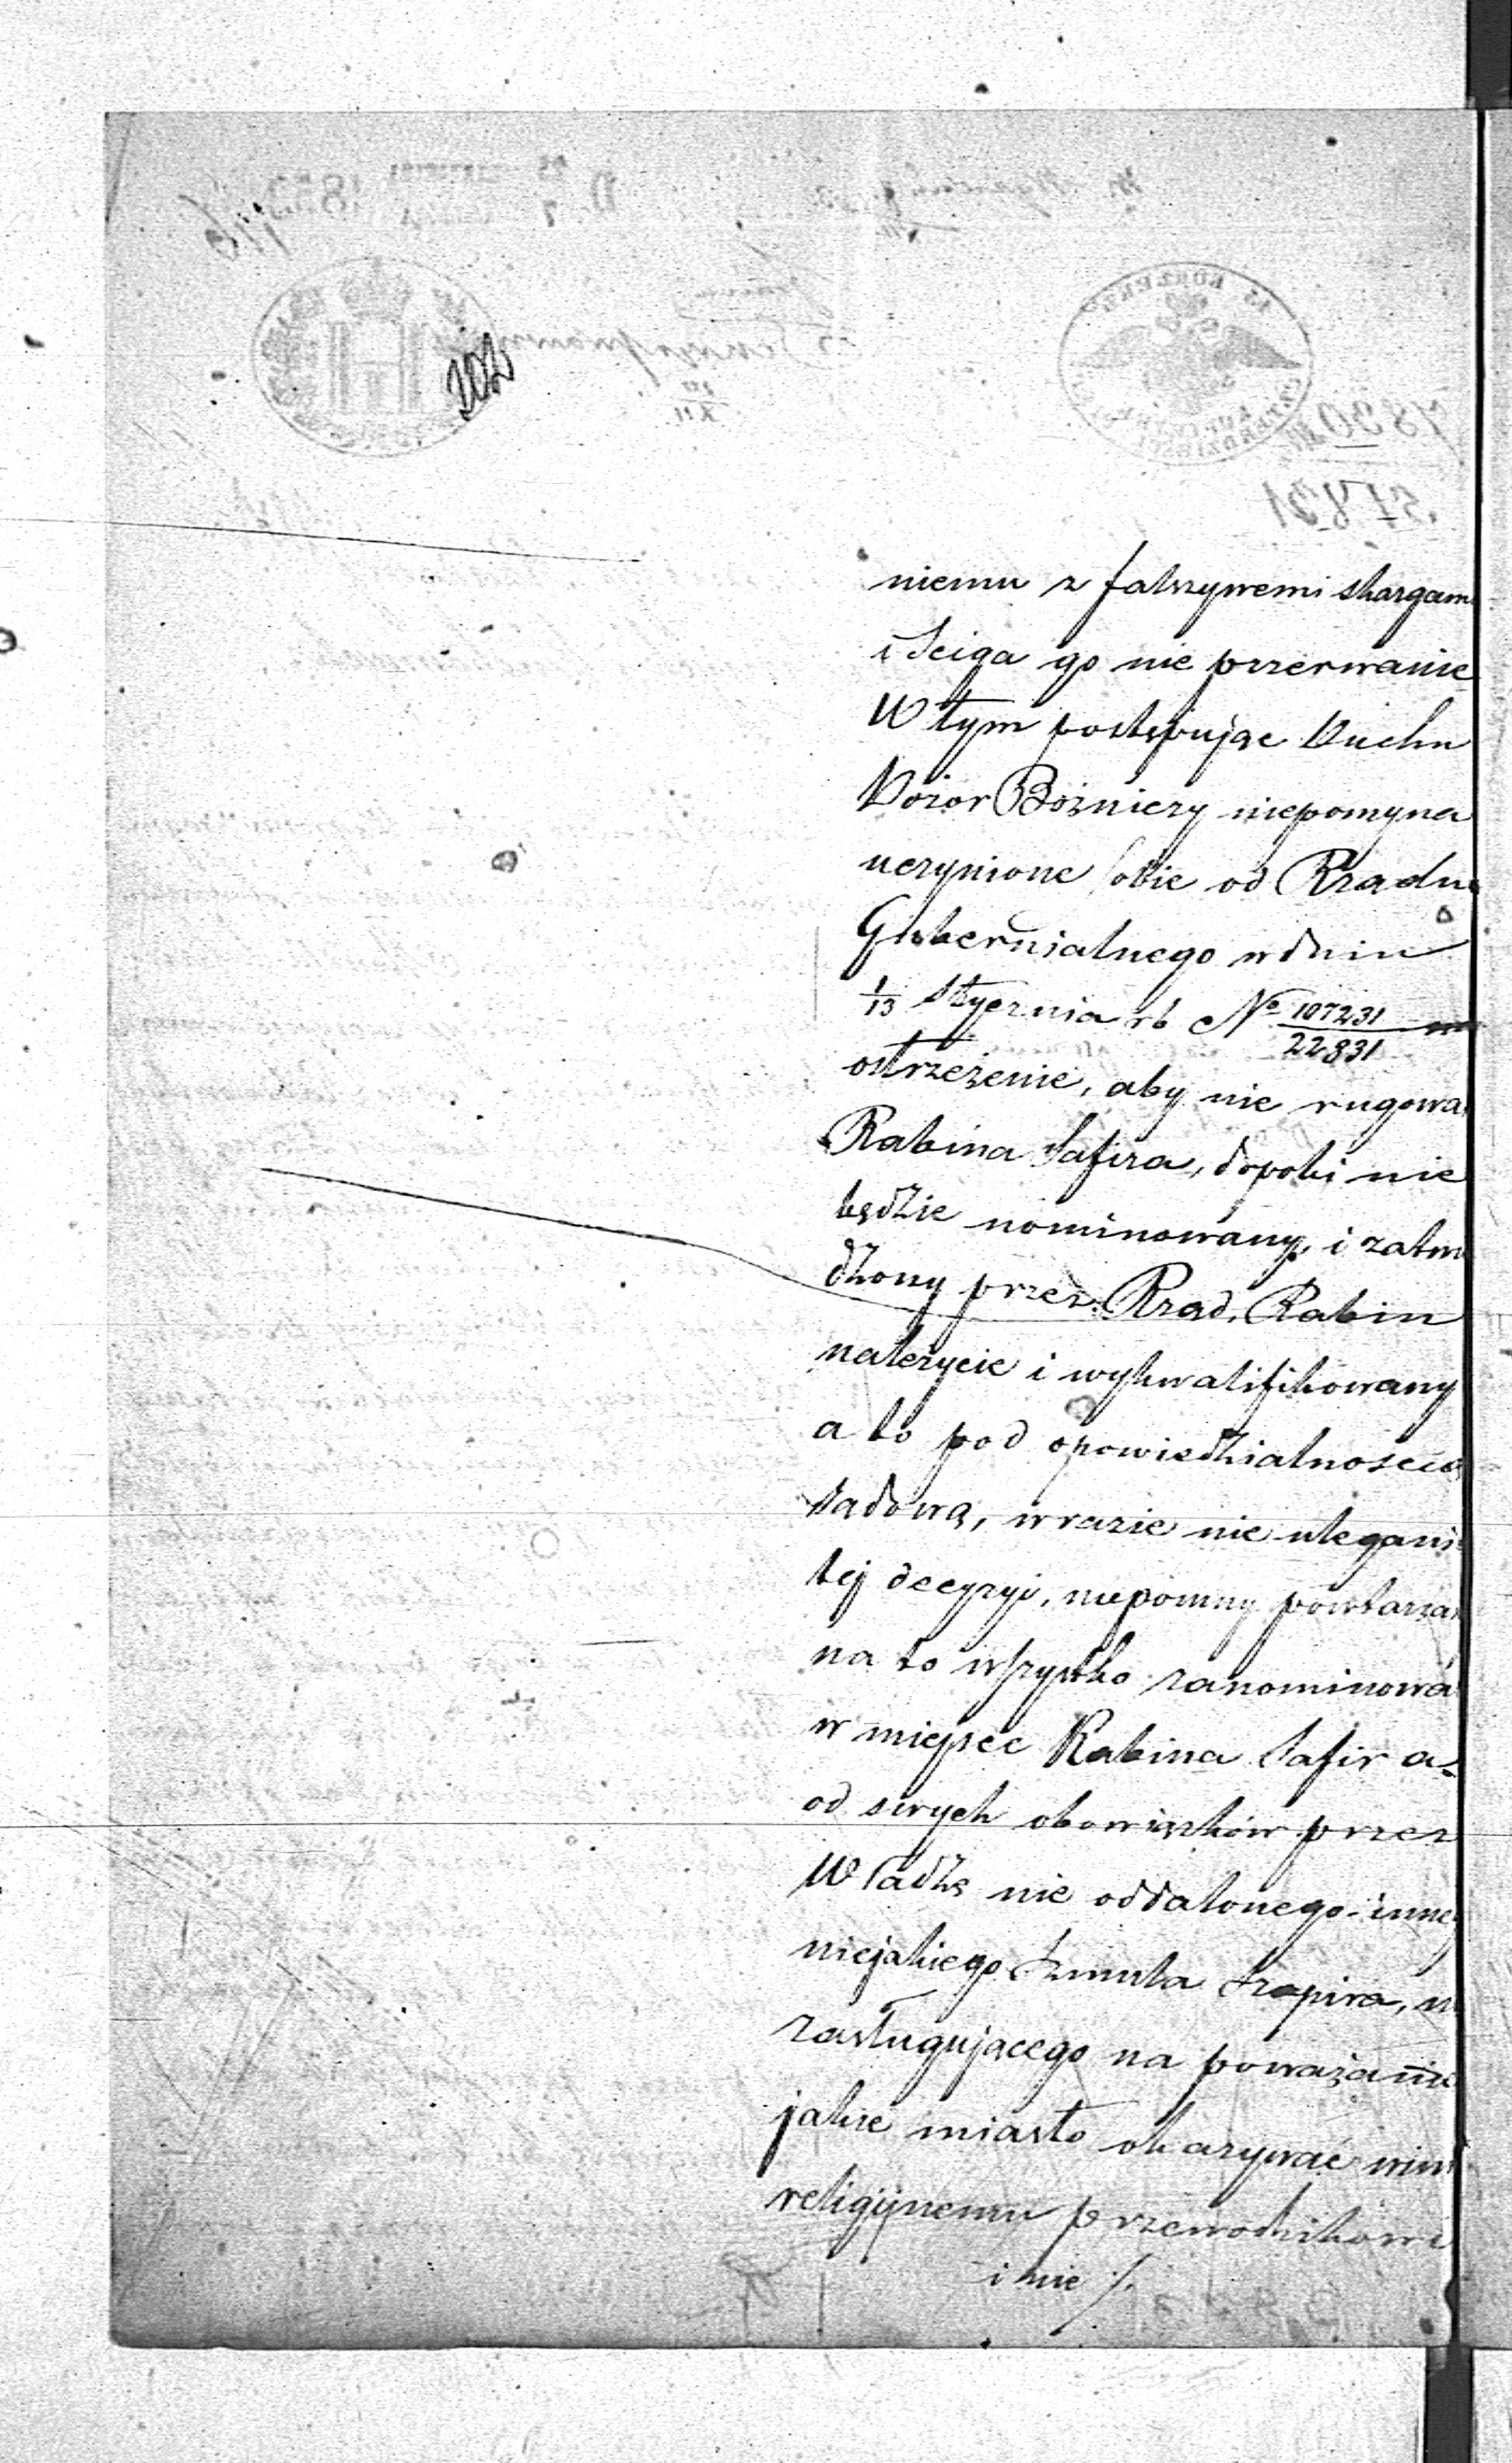 niemu z fałszywemi skargam
i Sciga go nie przerwanie
W tym postępując Duchu
Dozor Bożniczy niepomyna
uczynione sobie od Rządu
Gubernialnego w dniu
1/13 Stycznia rb No 107231/22831
ostrzeżenie, aby nie rugowa
Rabina Safira, dopoki nie
będzie nominowany, i zatw
dzony przez Rząd, Rabin
należycie i wykwalifikowany
a to pod opowiedzialnoscią
sądową, w razie nie ulegani
tej decyzyi, niepomny powtarza
na to wszystko zanominowa
w miejsce Rabina Safir a
od swych obowiązków przez
Władzę nie oddalonego inne
niejakiego Szmula Szapira, n
zasługującego na poważanie
jakie miasto okazywać win
religijnemu przewodnikowi
i nie /.